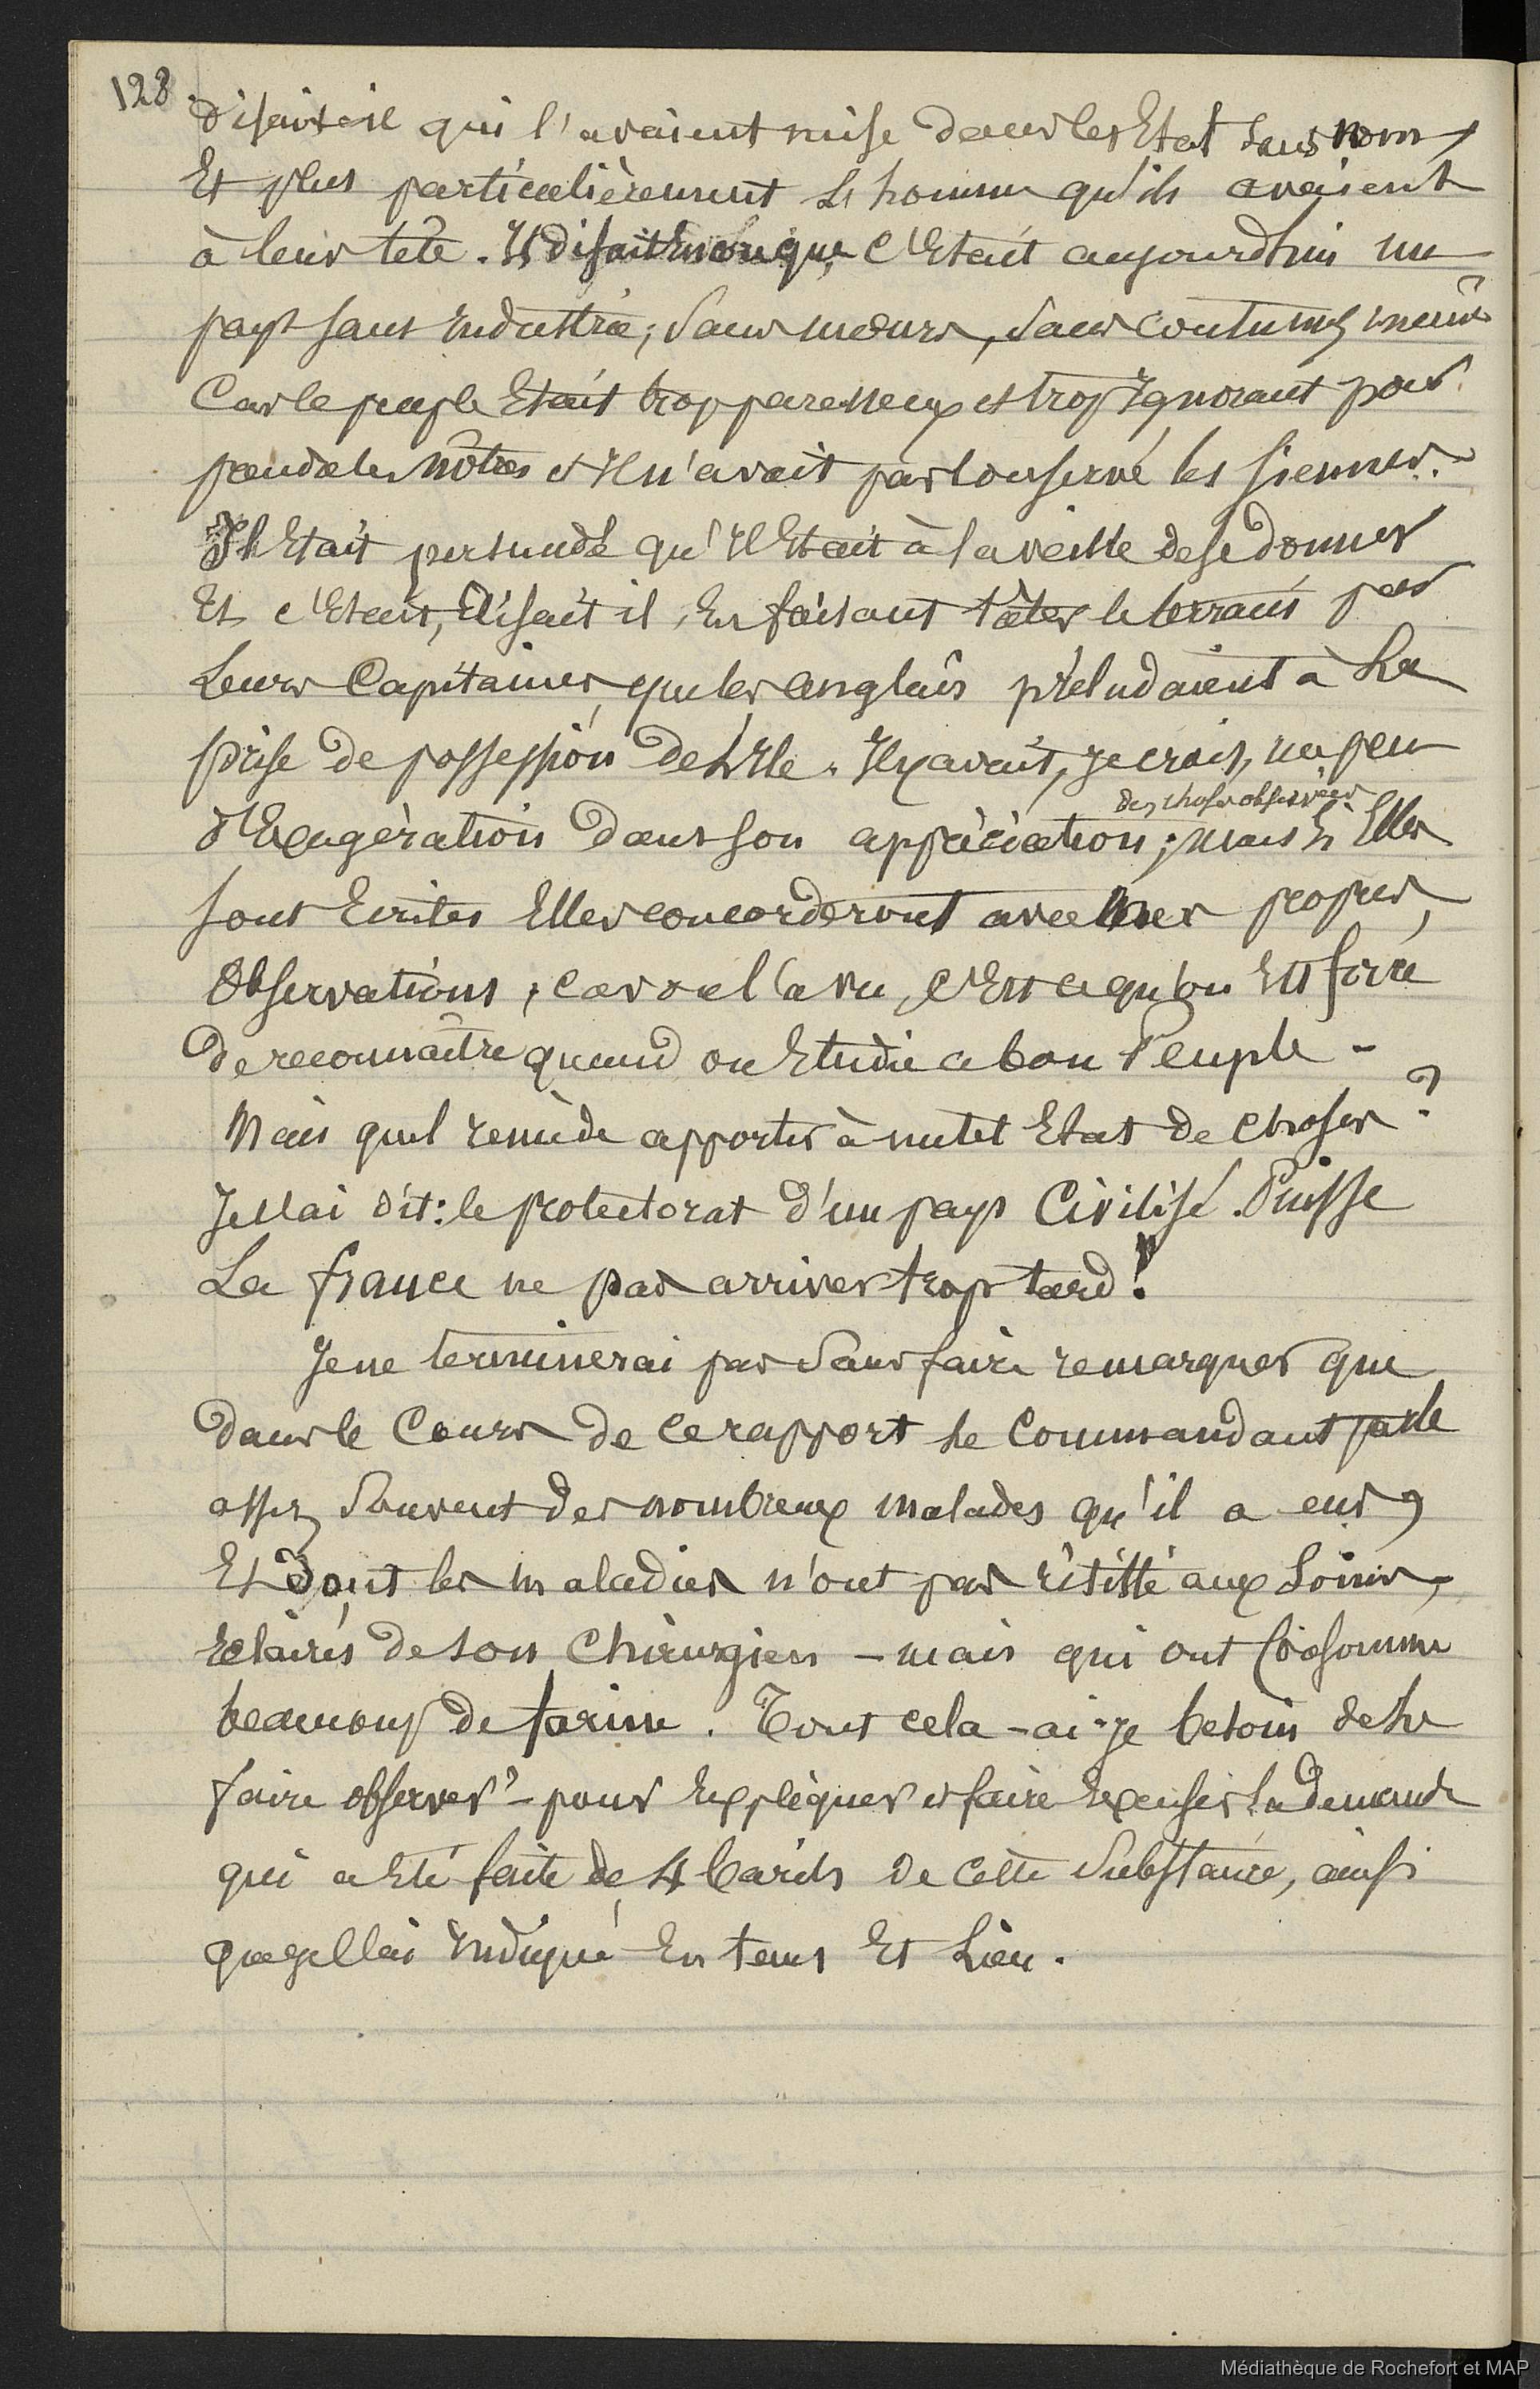 128
disait-il qui l'avaient mise dans les Etat sans nom,
Et plus particulièrement L'homme qu'ils avaient
à leur tête. Il disait encore que c'Etait aujourdhui un
pays sans industrie, sans mœurs, sans coutumes même
Car le peuple Etait trop paresseux et trop Ignorant pour
prendre les nôtres et Il n'avait pas conservé les siennes.
Il Etait persuadé qu'Il Etait à la veille de se donner
Et c'Etait, disait il, En faisant tâter le terrain par
Leurs Capitaines, que les anglais préludaient à La
prise de possession de L'Ile. Il y avait, je crois, un peu
des choses observées
d'Exagération dans son appréciation; mais Si Elles
sont Ecrites Elles concorderont avec mes propres
Observations, car on l'a vu, c'Est ce qu'on Est forcé
de reconnaître quand on Etudie ce bon Peuple -
Mais quel remède apporter à un tel Etat de choses ?
Je l'ai dit: le protectorat d'un pays Civilisé. Puisse
La france ne pas arriver trop tard !
Je ne terminerai pas sans faire remarquer que
dans le Cours de ce rapport Le Commandant parle
assez souvent des nombreux malades qu'il a eus,
Et dont les maladies n'ont pas résisté aux Soins
Eclairés de son Chirurgien - mais qui ont Consommé
beaucoup de farine. Tout cela - ai-je besoin de le
faire observer ? - pour Expliquer et faire Excuser La demande
qui a Eté faite de 4 barils de cette substance, ainsi
que je l'ai indiqué En tems Et Lieu.
Médiathèque de Rochefort et MAP